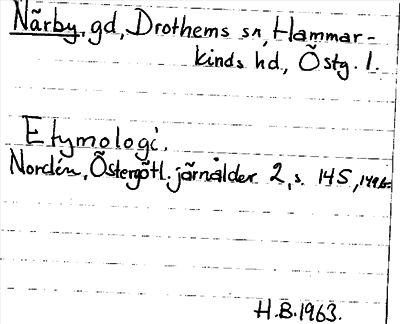 Närby, gd, Drothems sn, Hammar-
kinds hd, Östg. l.
Etymologi.
Nordén, Östergötl. järnålder 2, s. 145, 149 f.
H.B. 1963.